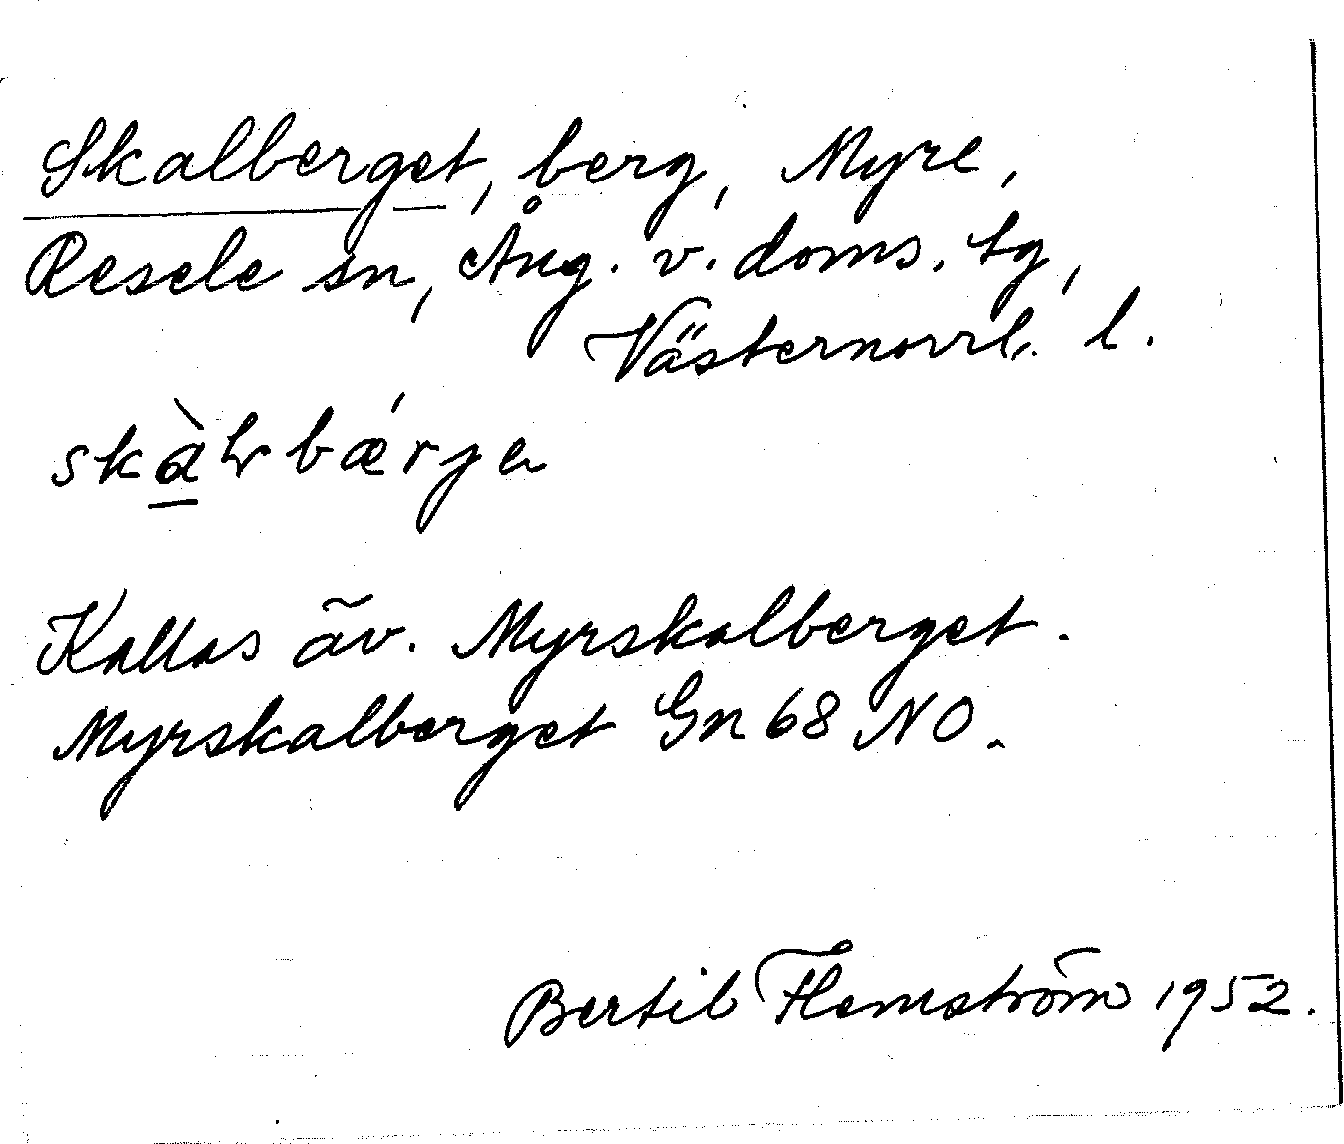 Skalberget, berg, Myre,
Resele sn, Ång. v. doms. tg,
Västernorrl. l.
skàlrbǽrje
Kallas äv. Myrskalberget.
Myrskalberget Gn 68 NO.
Bertil Flemström 1952.